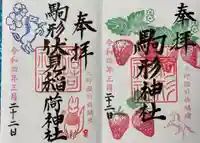 奉拝
駒形神社
令和四年三月二十二日
奉拝
駒形伏見稲荷神社
令和四年三月二十二日